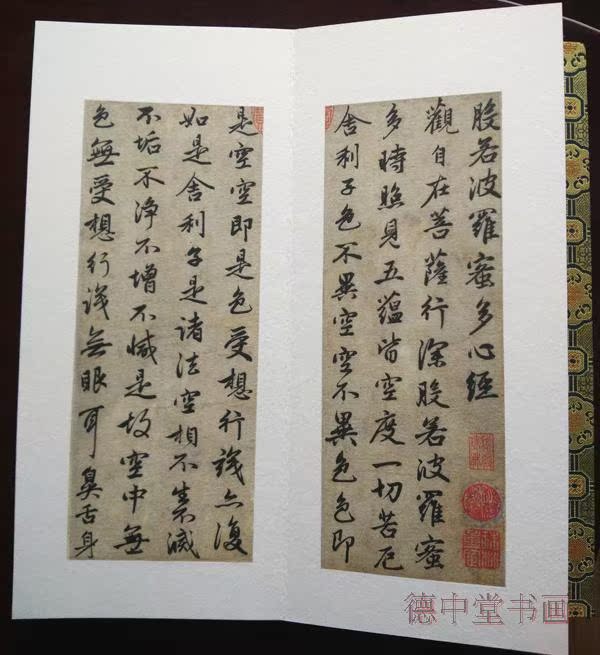 般若波羅蜜多心經
觀自在菩薩行深般若波羅蜜
多時照見五蘊皆空度一切苦厄
舍利子色不異空空不異色色即
是空空即是色受想行識亦復
如是舍利子是諸法空相不生不滅
不垢不淨不增不減是故空中無
色無受想行識無眼耳鼻舌身
德中堂书画